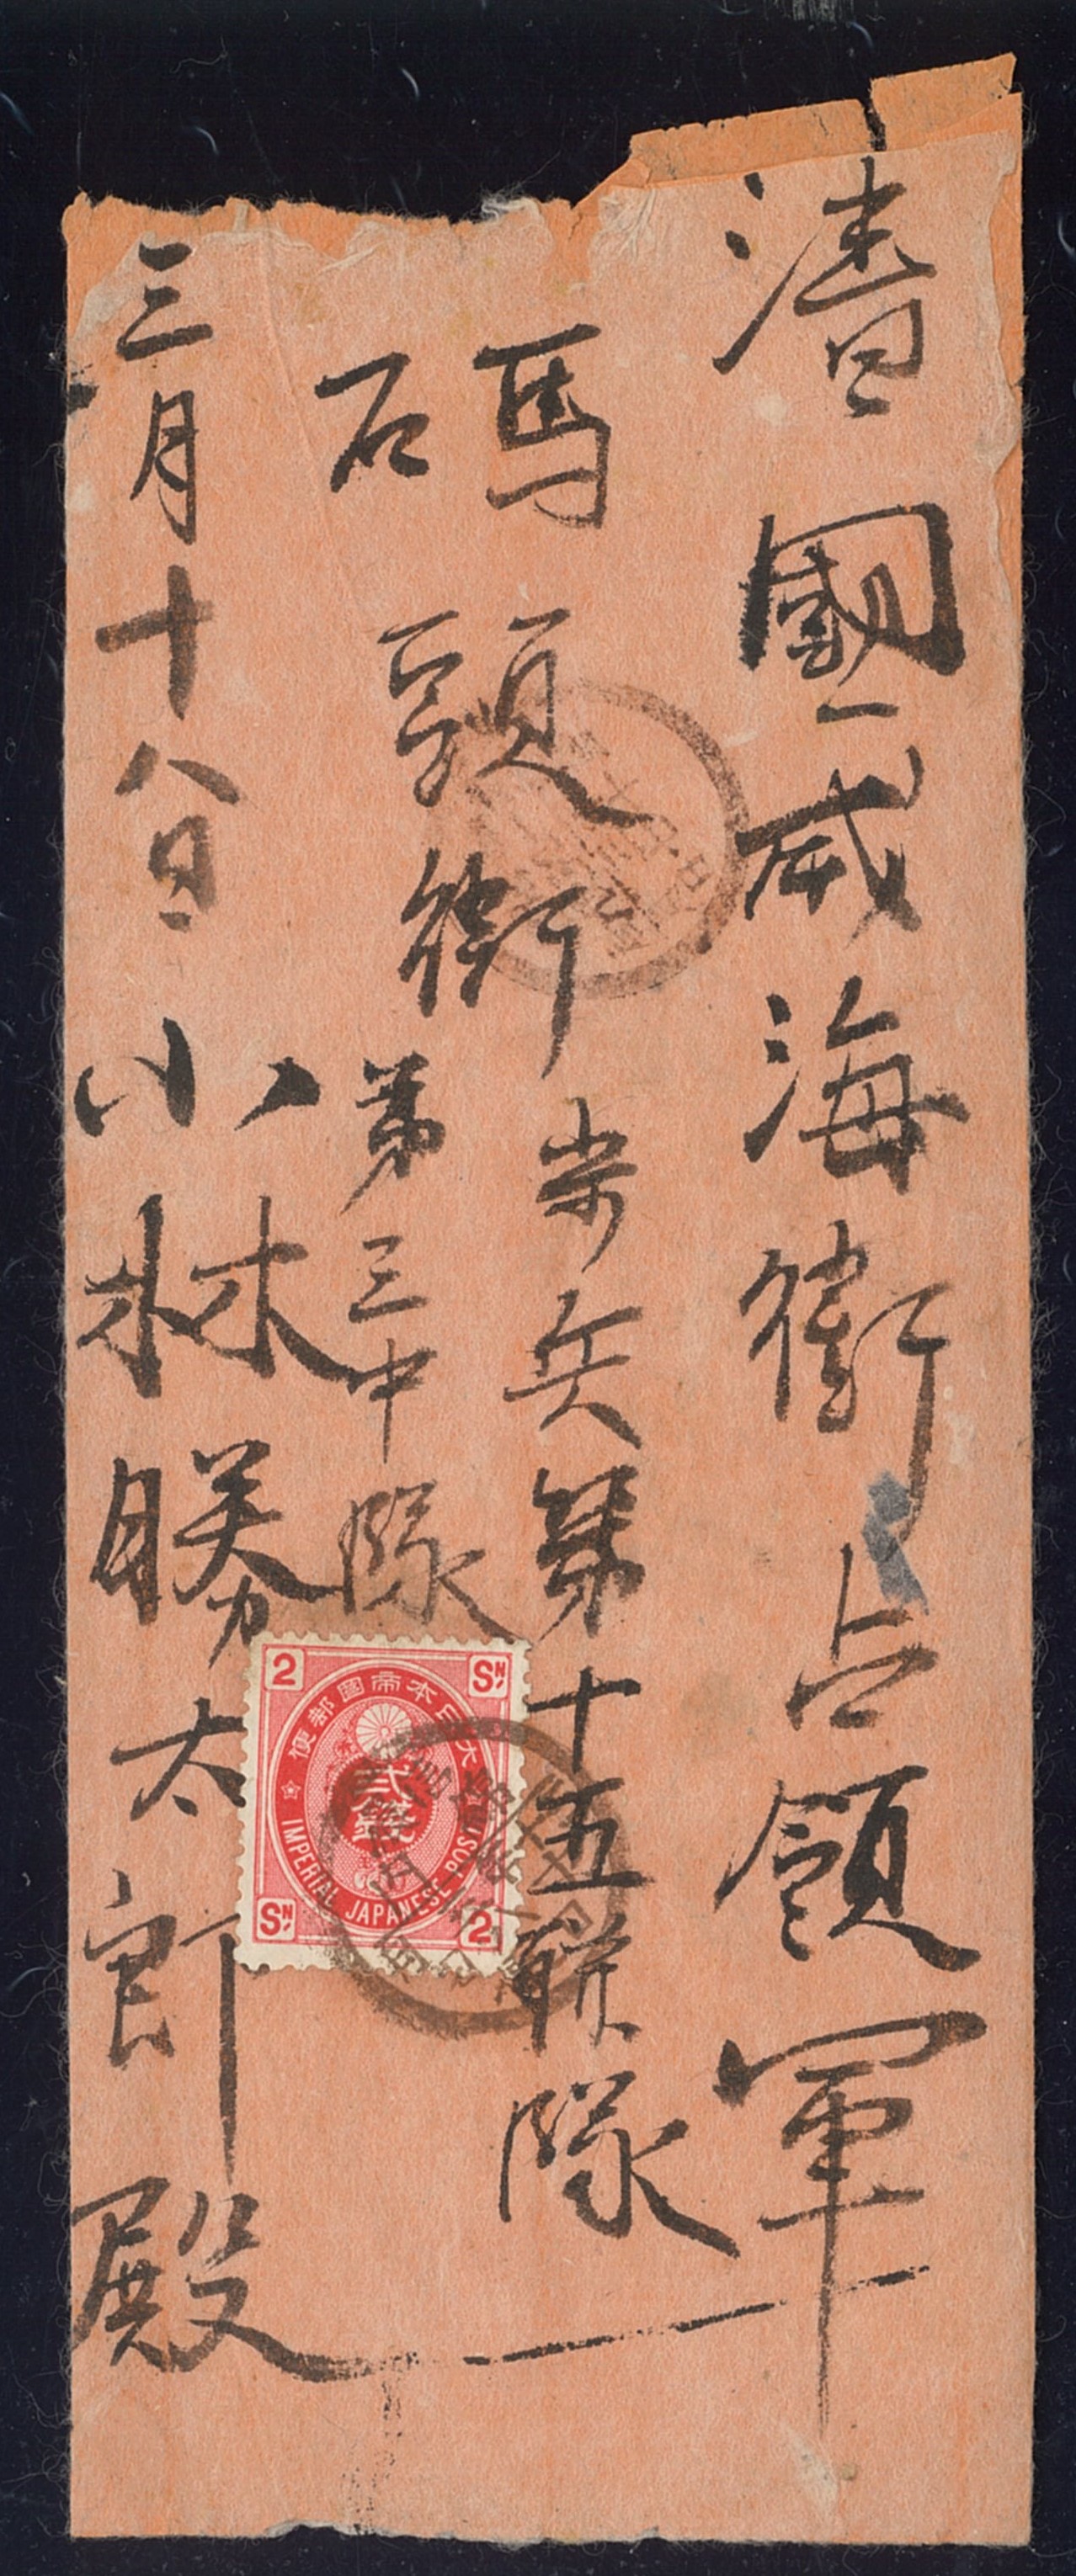 清國威海衛占領軍
碼頭街歩兵第十五聯隊
第三中隊
小林勝太郎殿
三月十八日
大日本帝國郵便
貳錢
IMPERIAL JAPANESE POST
2 SN
SN 2